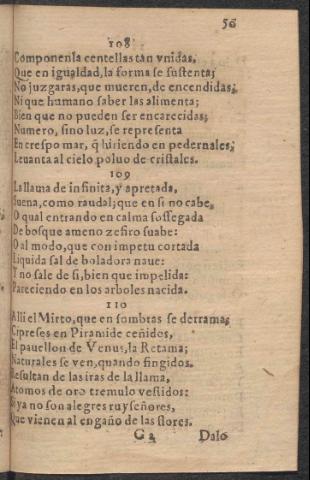 56
108
Componenla centellas tan vnidas,
Que en igualdad, la forma se sustenta;
No juzgaras, que mueren, de encendidas;
Ni que humano saber las alimenta;
Bien que no pueden ser encarecidas;
Numero, sino luz, se representa
En crespo mar, q̃ hiriendo en pedernales,
Leuanta al cielo poluo de cristales.
109
La llama de infinita, y apretada,
Suena, como raudal; que en si no cabe,
O qual entrando en calma sossegada
De bosque ameno zefiro suabe:
O al modo, que con impetu cortada
Liquida sal de boladora naue:
Y no sale de si, bien que impelida:
Pareciendo en los arboles nacida.
110
Alli el Mirto, que en sombras se derrama;
Cipreses en Piramide ceñidos,
El pauellon de Venus, la Retama;
Naturales se ven, quando fingidos.
Resultan de las iras de la llama,
Atomos de oro tremulo vestidos:
Si ya no son alegres ruyseñores,
Que vienen al engaño de las flores.
G 2 Dalo